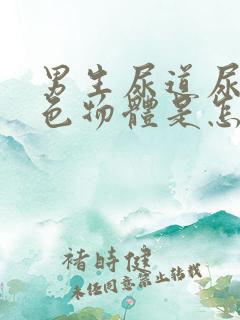 男生尿道尿
色物體是怎
褚時健
未任同意禁止转载